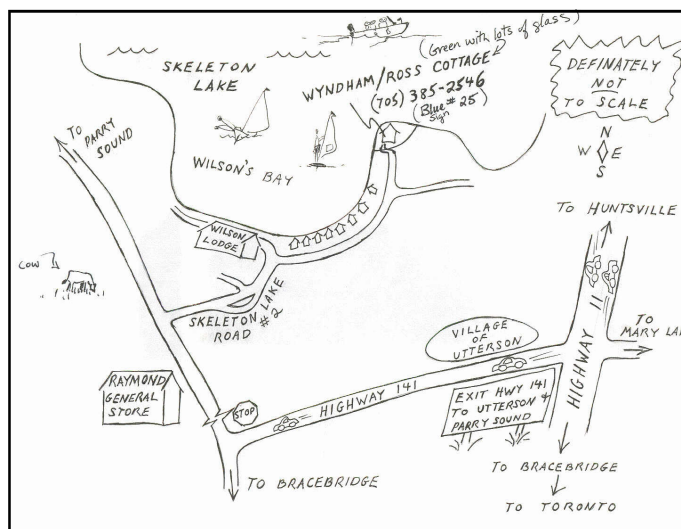 (Green with lots of glass)
SKELETON
LAKE
WYNDHAM/ROSS COTTAGE
(705) 385-2546
(Blue # 25)
Sign
DEFINATELY
NOT
TO SCALE
N
W E
S
TO
PARRY
SOUND
WILSON'S BAY
TO HUNTSVILLE
WILSON
LODGE
COW
SKELETON LAKE
ROAD #2
VILLAGE
OF
UTTERSON
TO
MARY LA
HIGHWAY 11
RAYMOND
GENERAL
STORE
STOP
HIGHWAY 141
EXIT HWY 141
TO UTTERSON &
PARRY SOUND
TO BRACEBRIDGE
TO BRACEBRIDGE
TO TORONTO